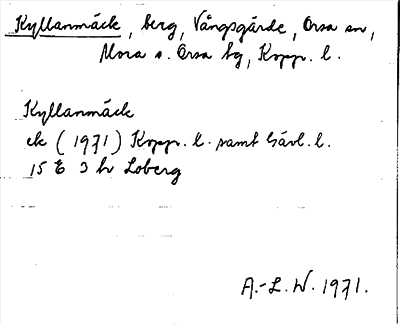 Kyllanmäck, berg, Vångsgärde, Orsa sn,
Mora o. Orsa tg, Kopp. l.
Kyllanmäck
ek (1971) Kopp. l. samt Gävl. l.
15 E 3 h Loberg
A.-L. W. 1971.